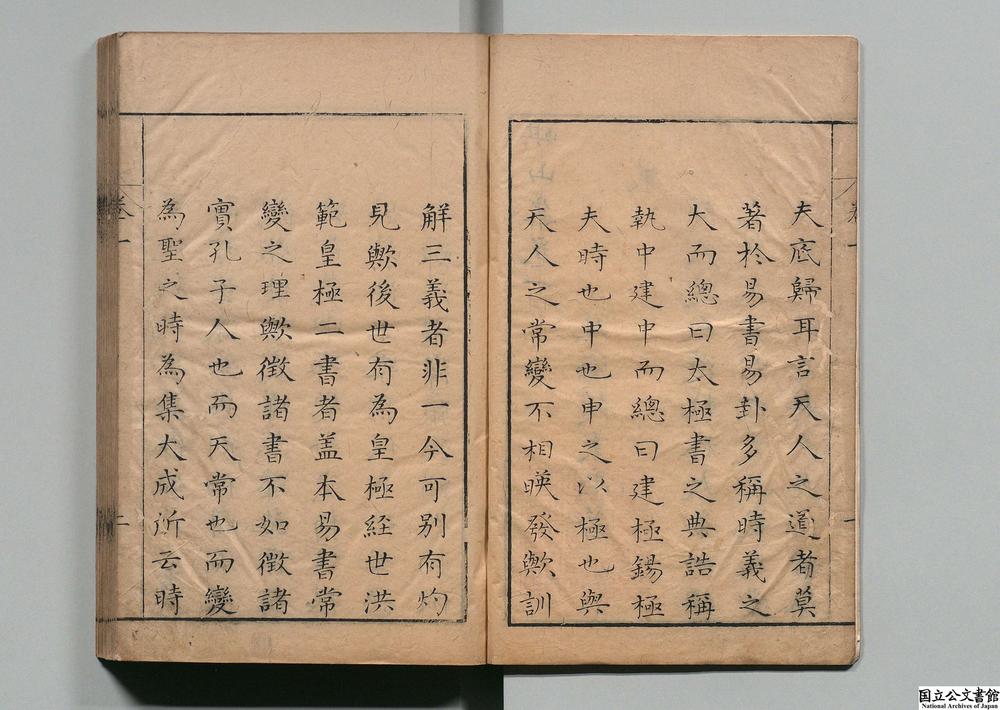 夫底歸耳言天人之道者莫
著於易書易卦多稱時義之
大而總曰太極書之典誥稱
執中建中而總曰建極錫極
夫時也中也申之以極也與
天人之常變不相暎發歟訓
解三義者非一今可別有灼
見歟後世有為皇極経世洪
範皇極二書者盖本易書常
變之理歟徵諸書不如徵諸
實孔子人也而天常也而變
為聖之時為集大成所云時
卷一
二
国立公文書館
National Archives of Japan